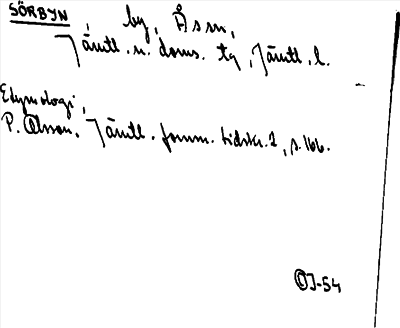 SÖRBYN, by, Ås sn,
Jämtl. n. doms. tg, Jämtl. l.
Etymologi,
P. Olsson, Jämtl. fornm. tidskr. 2, s. 166.
OJ-54